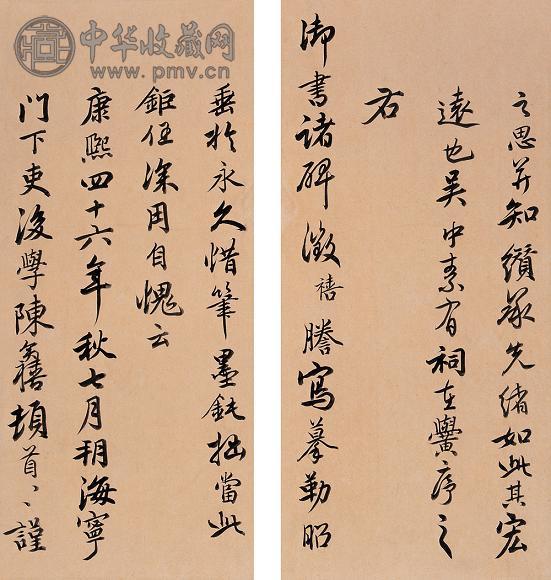 中华收藏网
www.pmv.cn
之思并知纘承先緒如此其宏
遠也吴中素有祠在黌序之
右
御書諸碑徵禧謄寫摹勒昭
垂於永久惜筆墨鈍拙當此
鉅任深用自愧云
康熙四十六年秋七月朔海寧
門下吏後學陳奕禧頓首〻謹